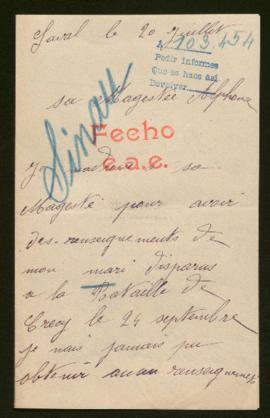 Laval le 20 Juillet
103.454
Pedir informes
Que se hace así
Devolver
sa Magestée Alphonse
Fecho
c.a.e.
Sinau
je madresse a sa
Magesté pour avoir
des renseignements de
mon mari disparus
a la Bataille de
Crecy le 24 septembre
je nais jamais pu
obtenir aucun renseignements